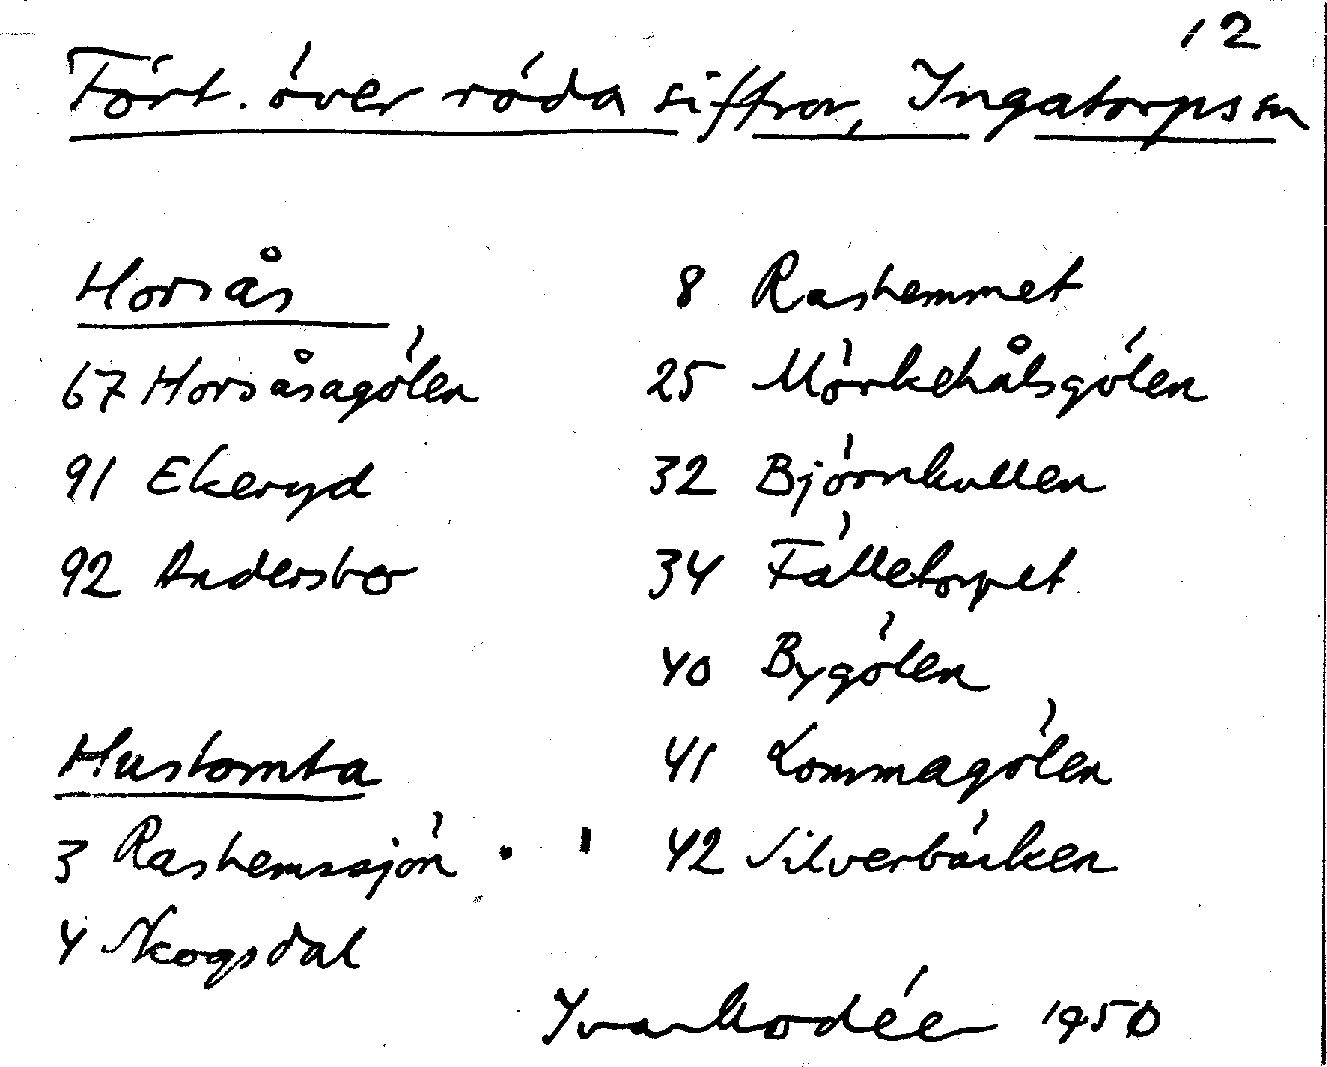 12
Fört. över röda siffror, Ingatorps sn
Horsås
67 Horsåsagölen
91 Ekeryd
92 Andersbo
Hustomta
3 Rashemssjön
4 Skogsdal
8 Rashemmet
25 Mörkehålsgölen
32 Björnkullen
34 Fälletorpet
40 Bygölen
41 Lommagölen
42 Silverbäcken
1950